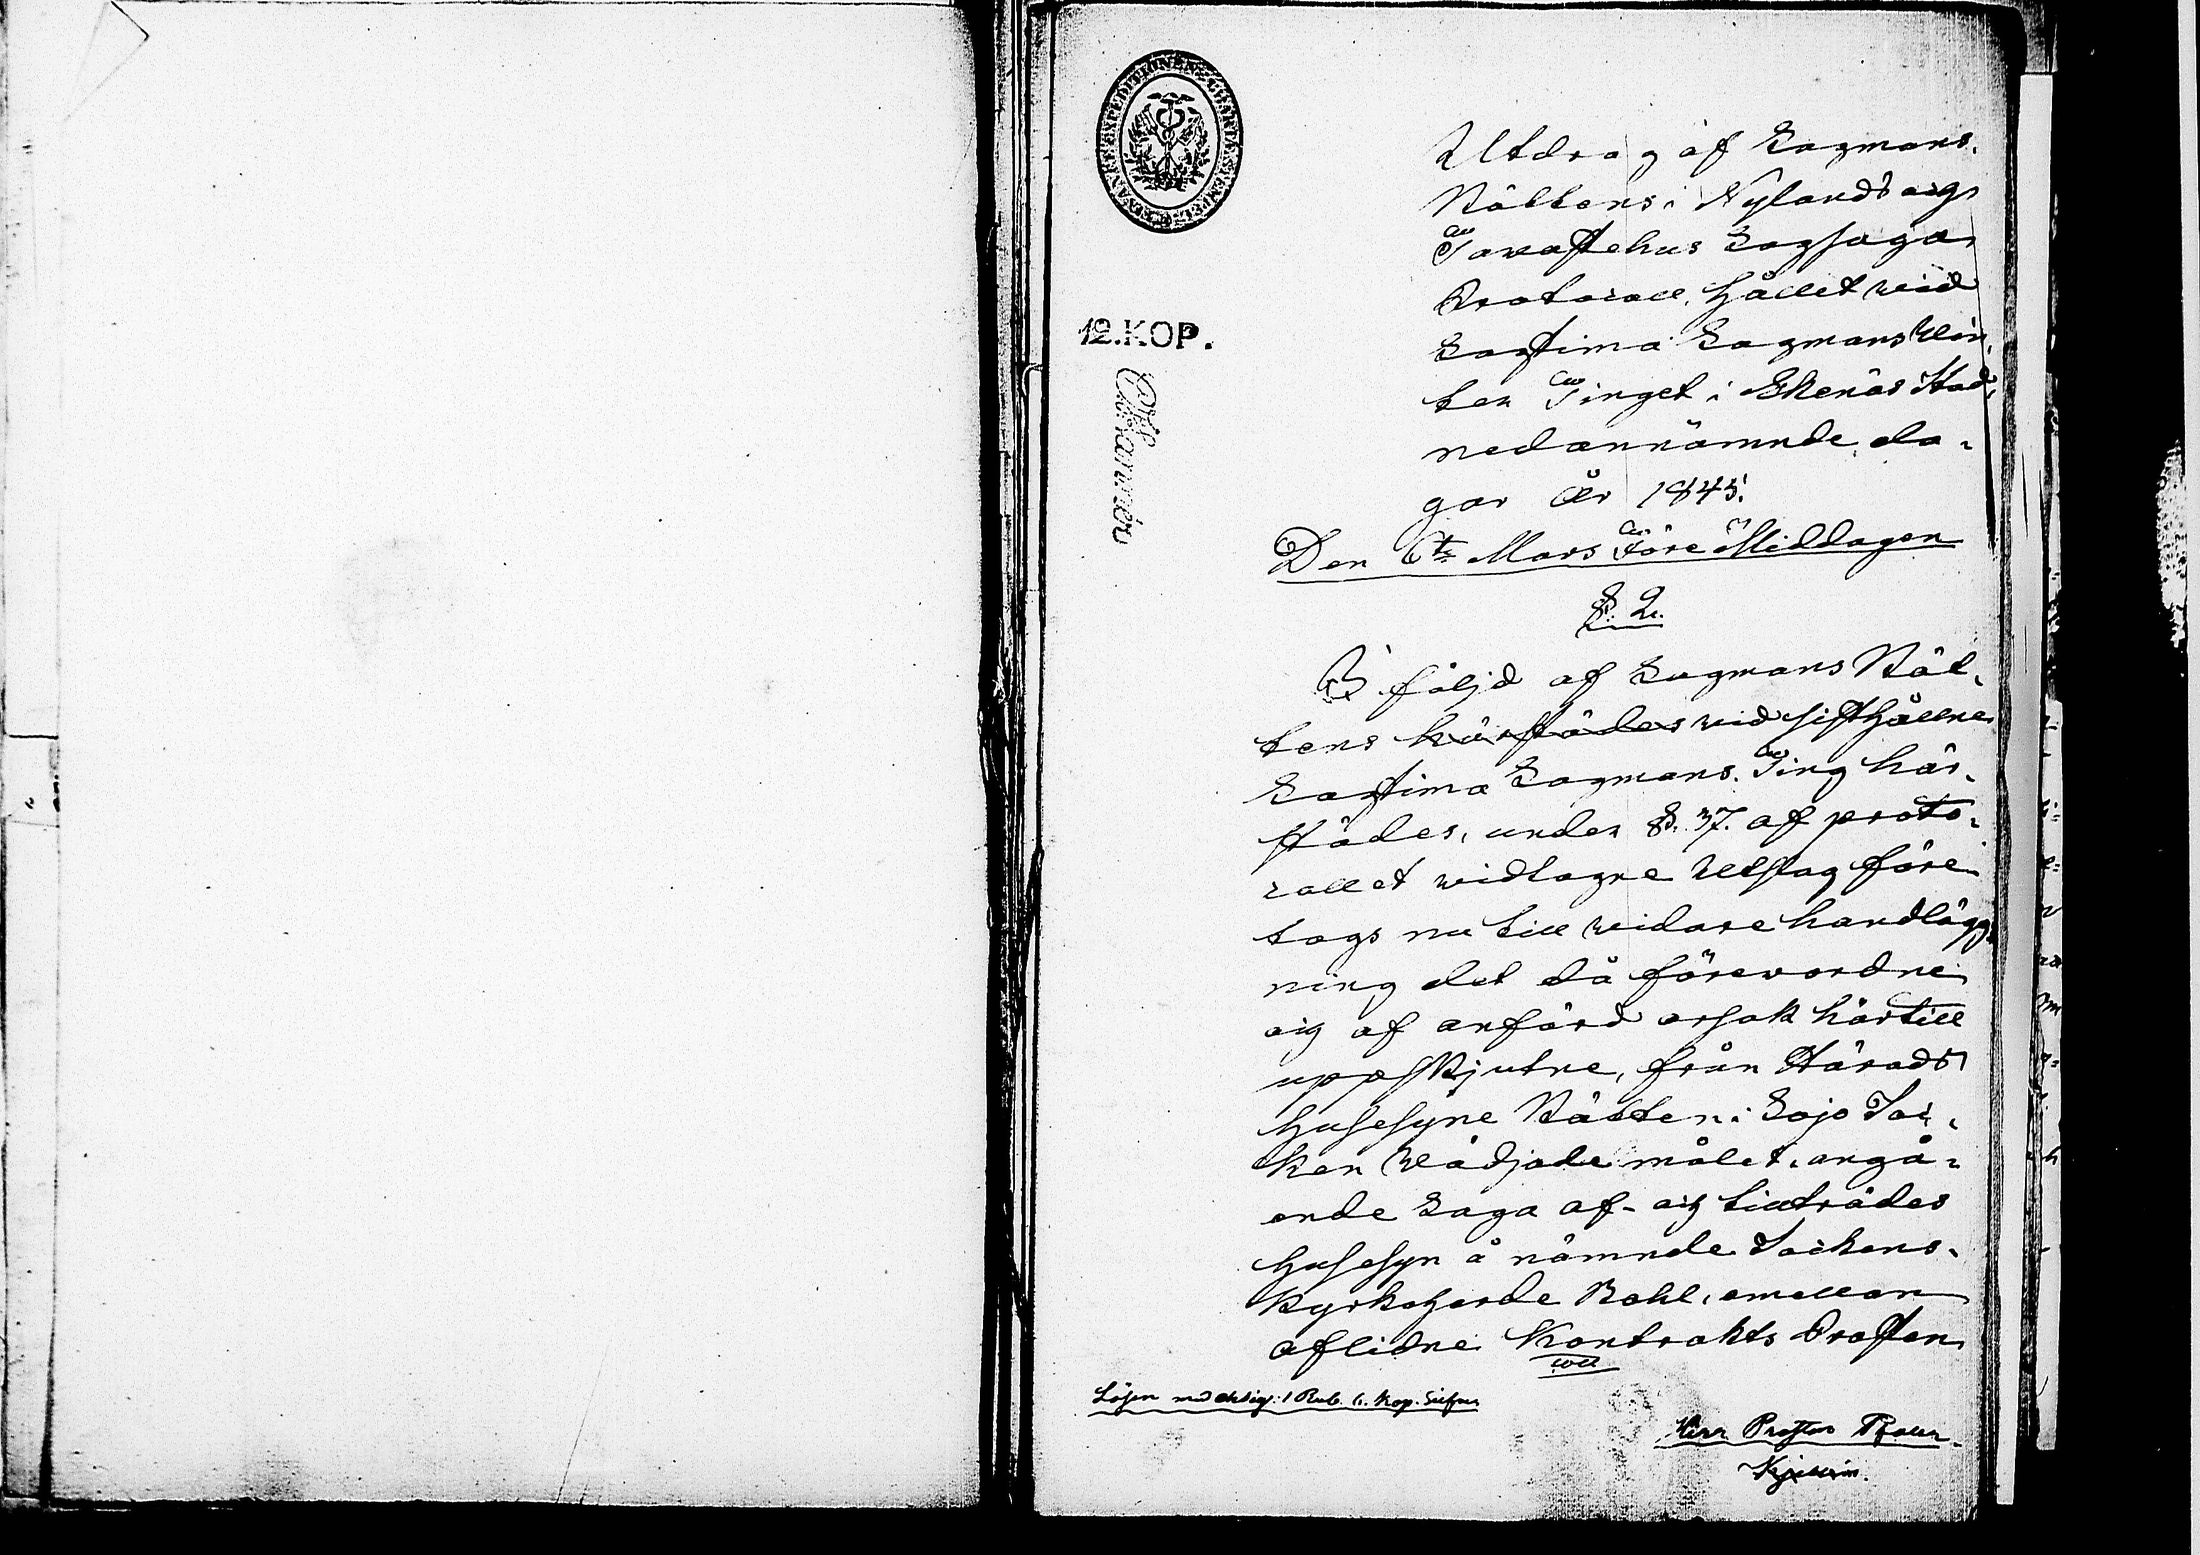 12.KOP.
Utdrag af Lagmans-
Rättens i Nylands och
Tavastehus Lagsaga
Protocoll, hållet vid
Lagtima Lagmans Vin-
ter Tinget i Ekenäs Stad,
nedannämnde da-
gar År 1845.
Den 6te Mars Före Middagen
§. 2.
I följd af Lagmans Rät-
tens härstädes vid sisthållne
Lagtima Lagmans-Ting här-
städes, under §. 37. af proto-
collet vidtagne Utslag före-
togs nu till vidare handlägg-
ning det då förevordne
och af anförd orsak härtill
uppskjutne, från Härads
Husesyne Rätten i Lojo Soc-
ken Vädjade målet, angå-
ende Laga af- och tillträdes
Husesyn å nämnde Sockens
Kyrkoherde Bohl, emellan
aflidne Kontrakts Prosten
Lösen med 1 Rub. 6. Kop. Silfver
Herr Prosten